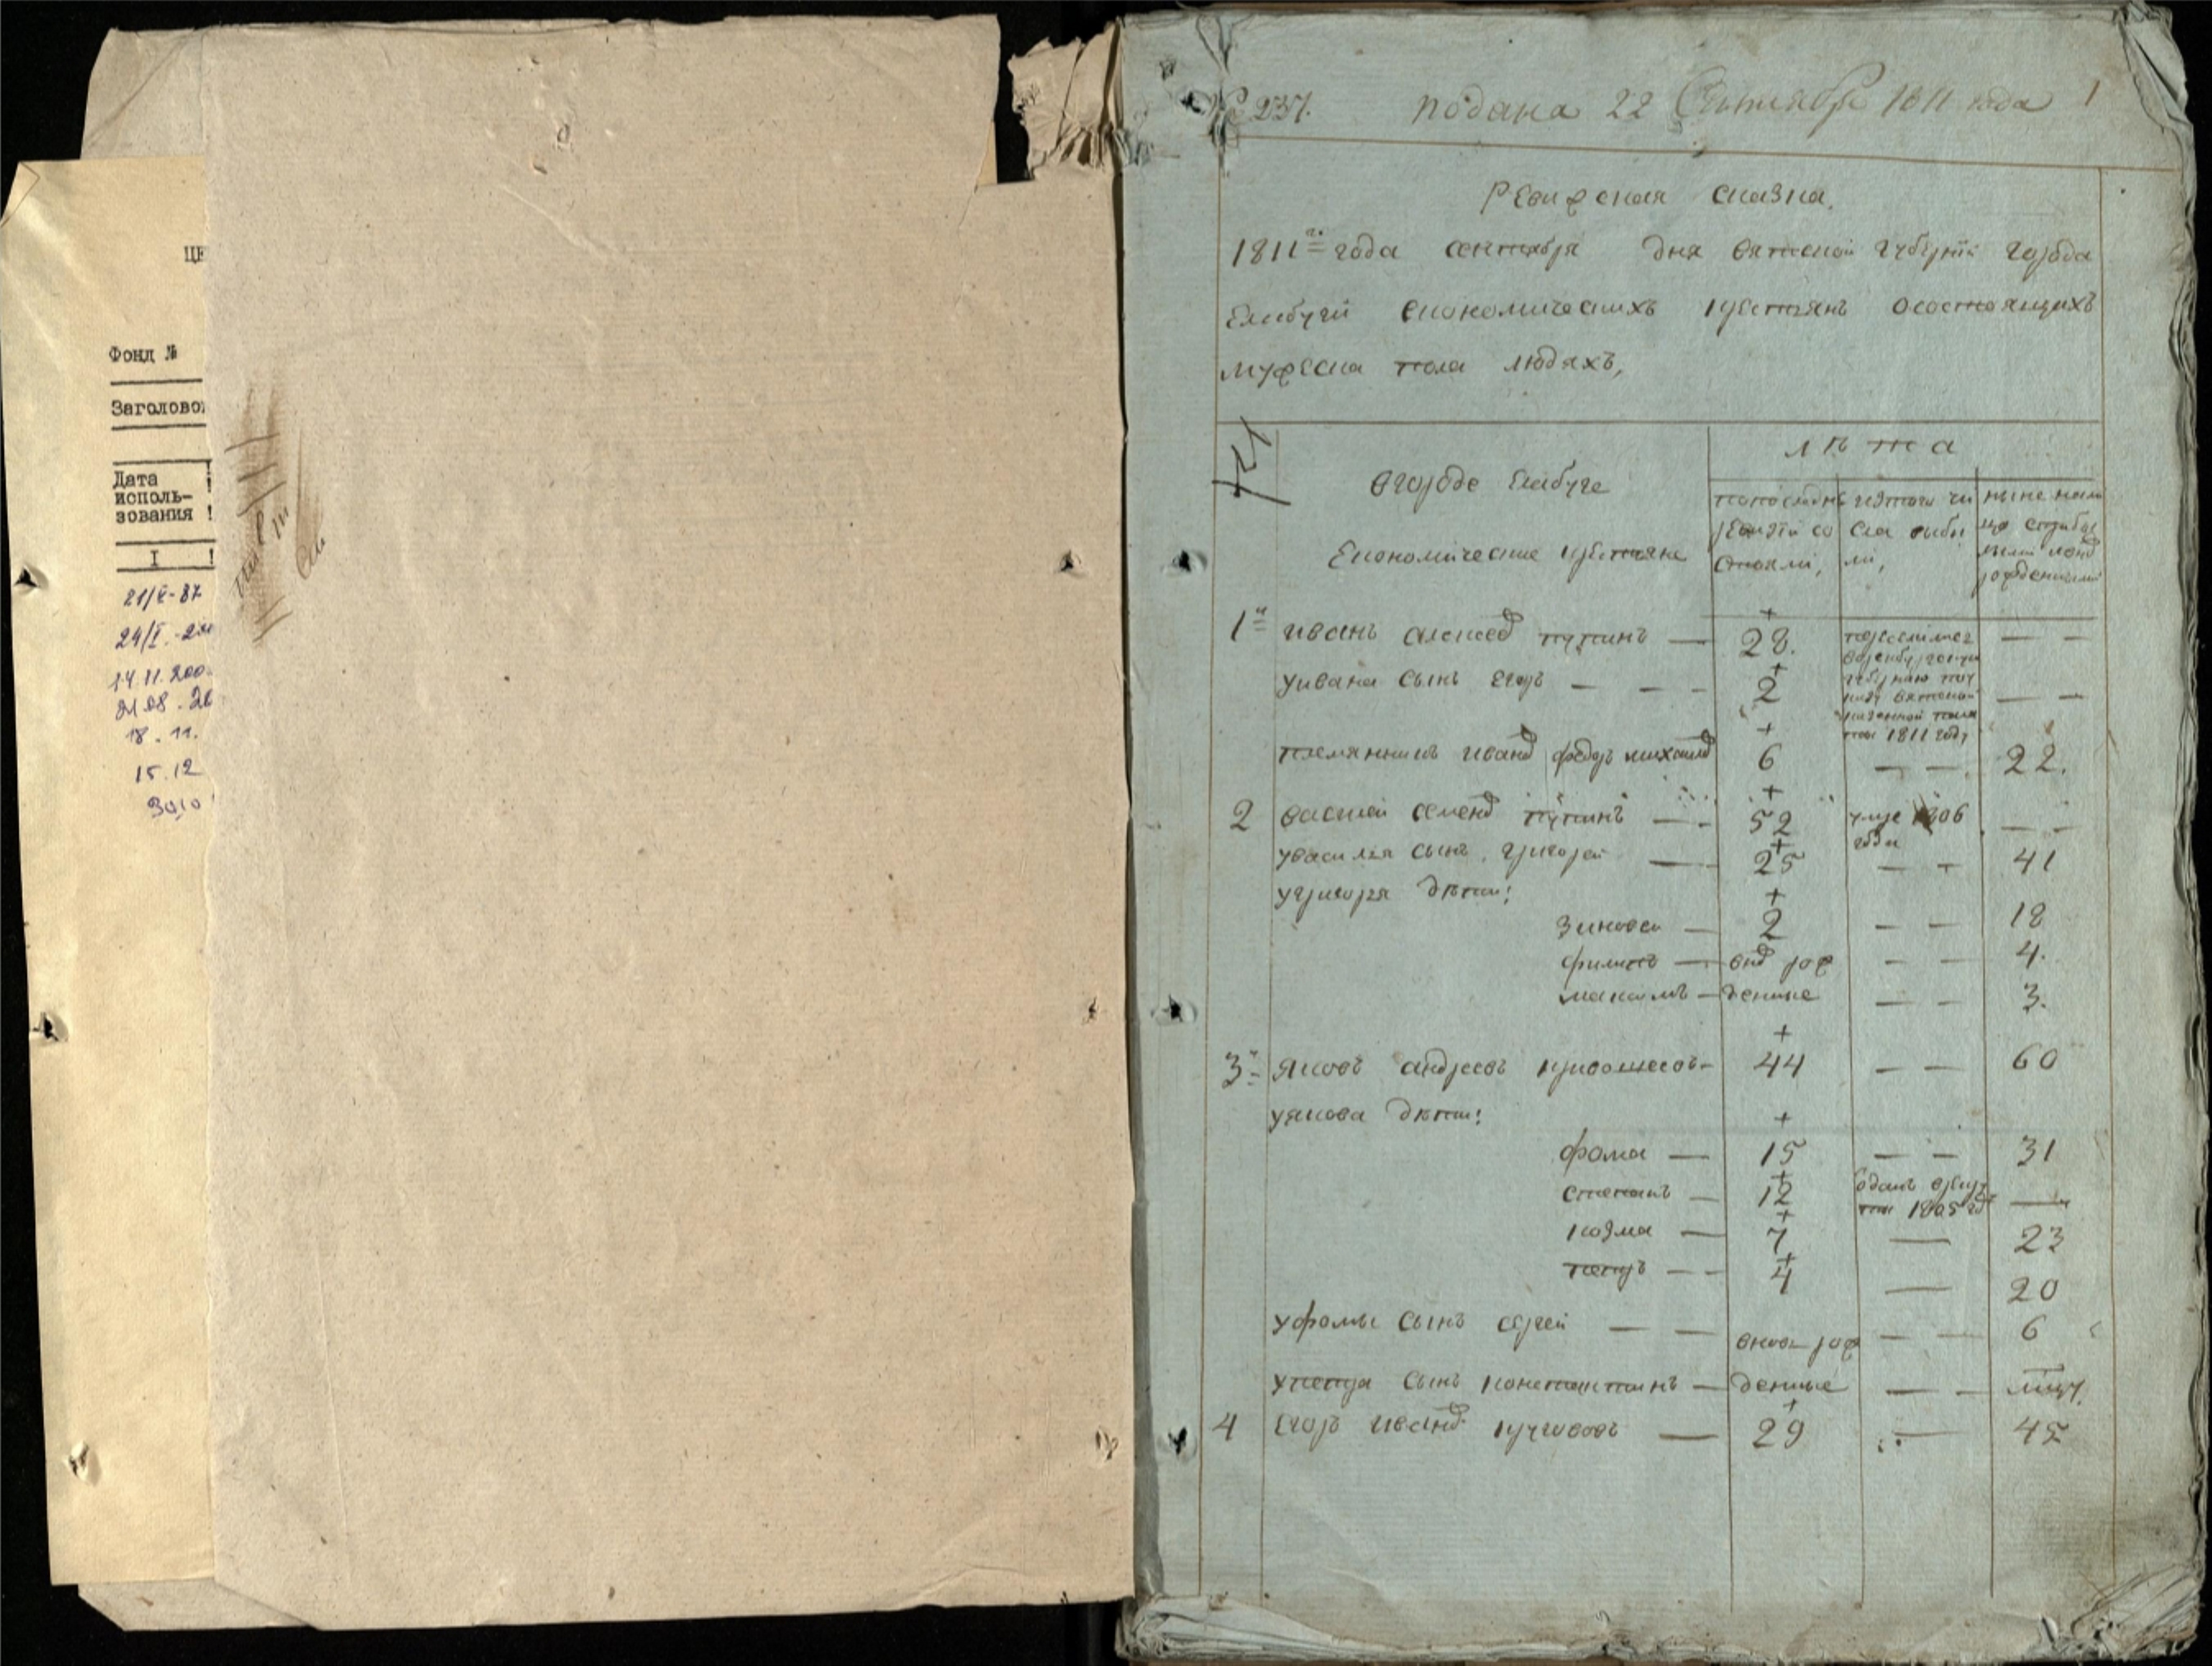 ЦЕ
Фонд №
Заголово
Дата
исполь-
зования !
I !
21/V-87
24/I.-2
14.11.200
21.08.20
18.11.
15.12
30,10
№ 237. подана 22 Сентября 1811 года 1
Ревижская сказка.
1811го года сентября дня вятской губернїи города
Елабуги економическихъ крестьянъ осостоящихъ
мужеска пола людяхъ,
лѣта
вгороде Елабуге
Економические крестьяне
попоследнѣ ревизїи состояли,
изтого числа выбыли,
ныне налицо
рожденными
1й иванъ алексеев пупинъ — 28. — —
переселился
воренбургскую
губернию
вятской
казенной пала
ты 1811 году
уивана сынъ егоръ — — — 2 — —
племянникъ иванъ федоръ михаилов 6 — — 22.
2 василей семенов пупинъ — 52 умре 1806 года — —
увасилья сынъ григорей — 25 — — 41
угригорья дѣти:
зиновеи — 2 — — 18
филипъ — внов рож — — 4.
максимъ — денные — — 3.
3й яковъ андреевъ кривошеевъ — 44 — — 60
уякова дѣти:
фома — 15 — — 31
степанъ — 12 одданъ врекру ты 1805 год —
козма — 7 — 23
петръ — — 4 — 20
уфомы сынъ сергей — — вновь рож — — 6
упетра сынъ констентинъ — денные — —
4 егоръ иванов — 29 — 45